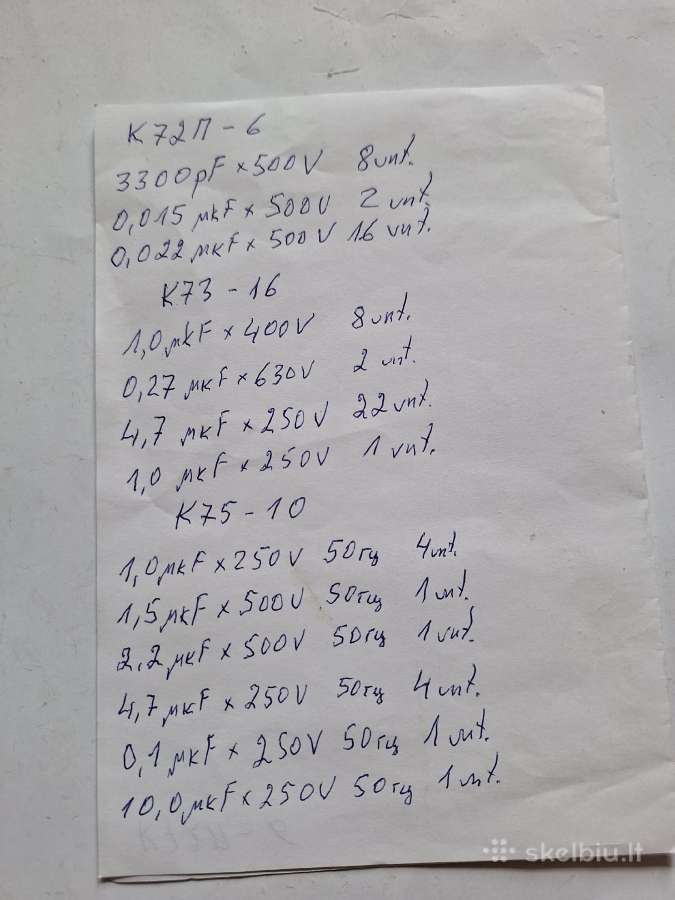 К72П-6
3300pF×500V 8vnt.
0,015 мкF×500V 2 vnt.
0,022 мкF×500V 16 vnt.
К73-16
1,0мкF×400V 8vnt.
0,27 мкF×630V 2 vnt.
4,7 мкF×250V 22vnt.
1,0 мкF×250V 1 vnt.
К75-10
1,0мкF×250V 50гц 4vnt.
1,5мкF×500V 50гц 1vnt.
2,2мкF×500V 50гц 1vnt.
4,7мкF×250V 50гц 4vnt.
0,1мкF×250V 50гц 1vnt.
10,0мкF×250V 50гц 1vnt.
skelbiu.lt